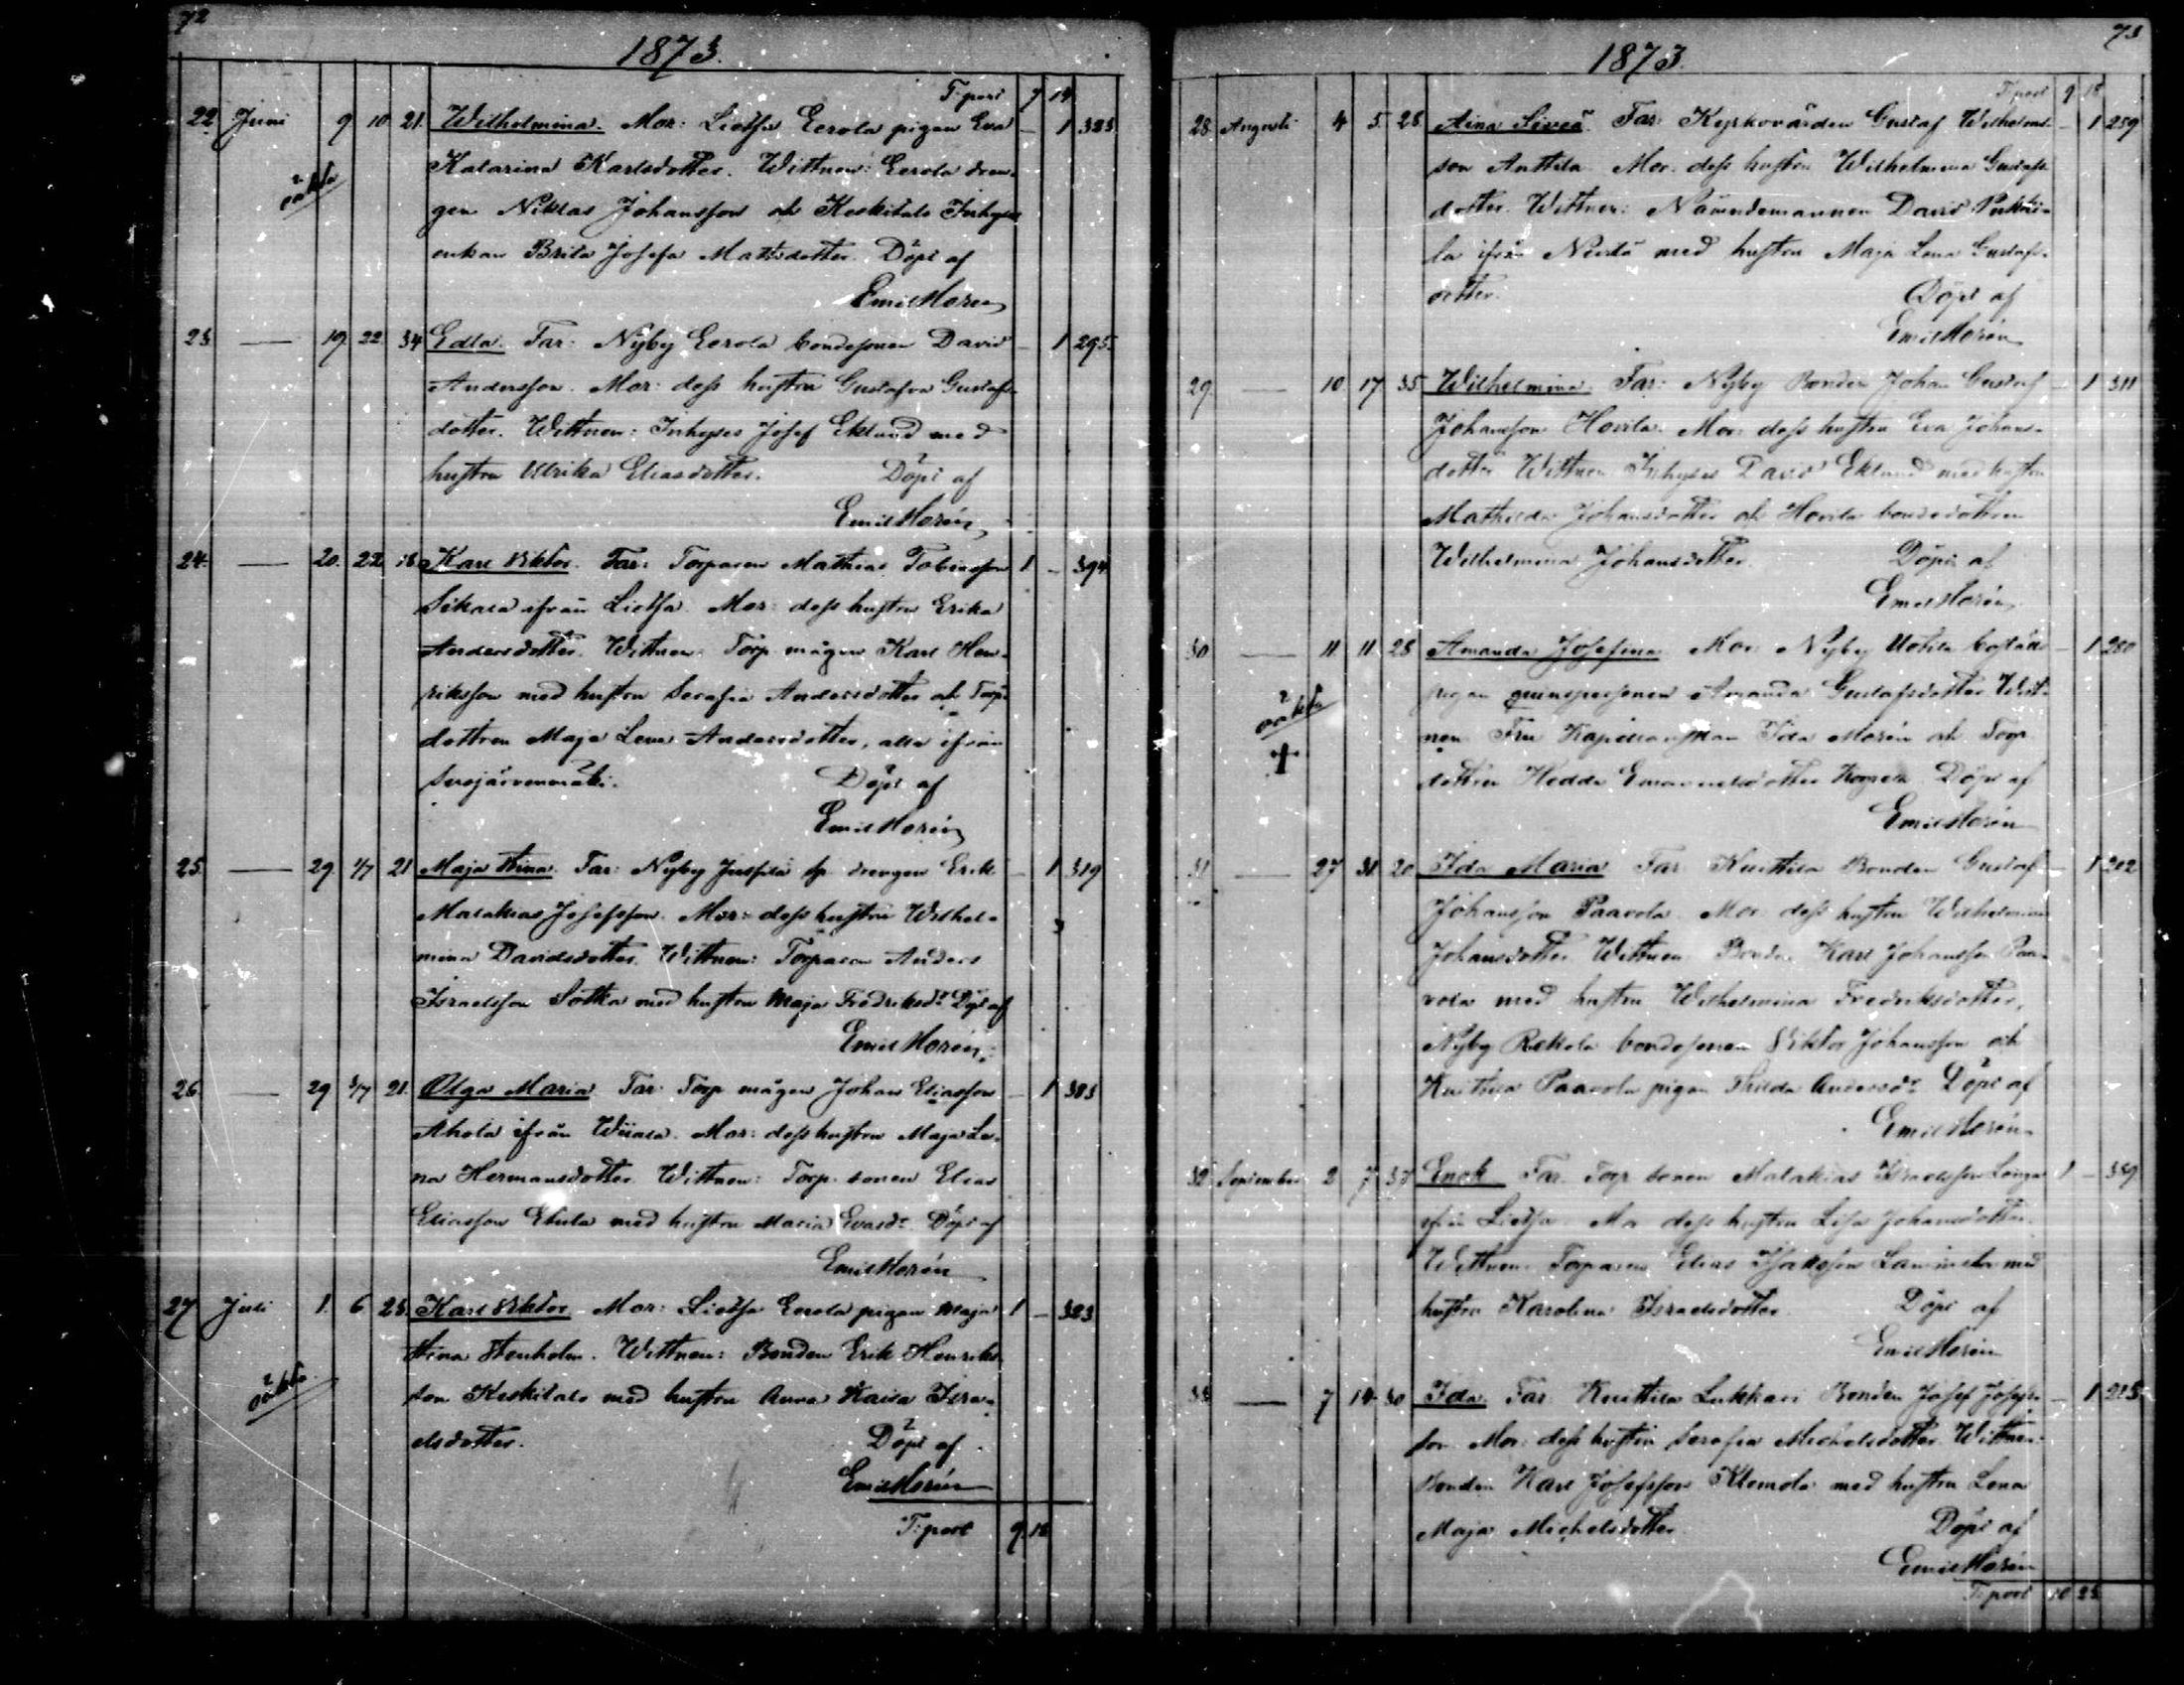 72
1873.
T:port 7 14
22 Juni 9 10 21 Wilhelmina. Mor: Lietsa Eerola pigan Eva – 1 383
Katarina Karlsdotter. Wittnen: Eerola dren-
oäkta
gen Niklas Johansson och Keskitalo Inhyses
enkan Brita Josefa Mattsdotter. Döpt af
Emil Morén
23 — 19 22 34 Edla. Far: Nyby Eerola bondesonen David – 1 295.
Andersson. Mor: dess hustru Gustafva Gustafs-
dotter. Wittnen: Inhyses Josef Eklund med
hustru Ulrika Eliasdotter. Döpt af
Emil Morén
24. — 20. 22 Karl Viktor. Far: Torparen Mathias Tobiasson 1 – 394
Sikala ifrån Lietsa. Mor: dess hustru Erika
Andersdotter. Wittnen: Torp. mågen Karl Hen-
riksson med hustru Serafia Andersdotter och Torp.
dottren Maja Lena Andersdotter, alla ifrån
Döpt af
Emil Morén
25. — 29 1/7 21 Maja Stina. Far: Nyby drengen Erik – 1 319
Malakias Josefsson. Mor: dess hustru Wilhel-
mina Davidsdotter. Wittnen: Torparen Anders
Israelsson Sotka med hustru Maja Fredriksdr. Döpt af
Emil Morén
26 — 29 21. Olga Maria. Far: Torp. mågen Johan Eliasson – 1 383
Ahola ifrån Wiiala. Mor: dess hustru Maja Le-
na Hermansdotter. Wittnen: Torp. sonen Elias
Eliasson med hustru Maria Döpt af
Emil Morén
27 Juli 1. 6 25. Karl Viktor. Mor: Lietsa Eerola pigan Maja 1 – 383
Stina Stenholm. Wittnen: Bonden Erik Henriks-
oäkta
son Keskitalo med hustru Anna Kaisa Isra-
elsdotter. Döpt af
Emil Morén
T:port 9 18
73
1873.
T:port 9 18
28 Augusti 4 5 28 Aina Siveä. Far: Kyrkovärden Gustaf Wilhelms- – 1 259
son Anttila. Mor: dess hustru Wilhelmina Gustafs-
dotter. Wittnen: Nämndemannen David
la ifrån med hustru Maja Lena Gustafs-
dotter. Döpt af
Emil Morén
29 — 10 17 35 Wilhelmina. Far: Nyby Bonden Johan Gustaf – 1 311
Johansson Hovila. Mor: dess hustru Eva Johans-
dotter. Wittnen: Inhyses David Eklund med hustru
Mathilda Johansdotter och Hovila bondedottren
Wilhelmina Johansdotter. Döpt af
Emil Morén
30 — 11 11 28 Amanda Josefina. Mor: Nyby – 1 280
qvinspersonen Amanda Gustafsdotter. Witt-
oäkta
nen: Fru Ida Morén och Torp.
+
dottren Hedda Emanuelsdotter Döpt af
Emil Morén
31 — 27 31 20 Ida Maria. Far: Knuttila Bonden Gustaf – 1 202
Johansson Paavola. Mor: dess hustru Wilhelmina
Johansdotter. Wittnen: Bonden Karl Johansson Paa-
vola med hustru Wilhelmina Fredriksdotter,
Nyby Rekola bondesonen Viktor Johansson och
Knuttila Paavola pigan Thilda Andersdr. Döpt af
Emil Morén
32 September 2 7 37 Enok. Far: Torp. sonen Malakias Israelsson 1 – 389
ifrån Lietsa. Mor: dess hustru Lisa Johansdotter.
Wittnen: Torparen Elias Isaksson med
hustru Karolina Israelsdotter. Döpt af
Emil Morén
33 — 7 14 30 Ida. Far: Knuttila Lukkari Bonden Josef Josefs- – 1 215
son. Mor: dess hustru Serafia Michelsdotter. Wittnen:
Bonden Karl Josefsson Klemola med hustru Lena
Maja Michelsdotter. Döpt af
Emil Morén
T:port 10 23